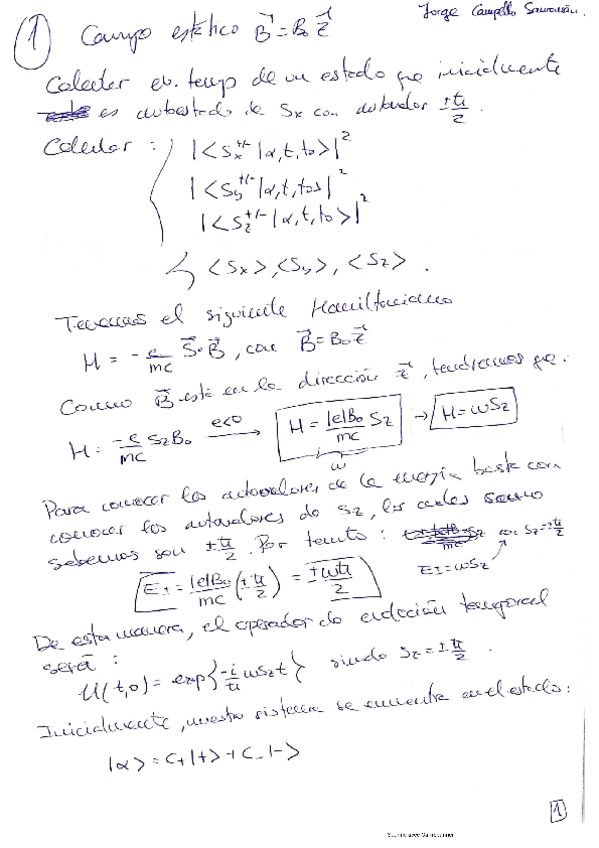 Jorge Campello Sauransán.
① Campo estático B⃗ = B₀ z⃗
Calcular ev. temp de un estado que inicialmente
es autoestado de Sx con autovalor ±ħ/2.
Calcular : |<Sx^+/-|α,t,t₀>|²
|<Sy^+/-|α,t,t₀>|²
|<Sz^+/-|α,t,t₀>|²
↳ <Sx>, <Sy>, <Sz>.
Tenemos el siguiente Hamiltoniano
H = -e/mc S⃗·B⃗, con B⃗ = B₀ z⃗
Como B⃗ está en la dirección z⃗, tendremos que.
H = -e/mc SzB₀ e<0 → H = |e|B₀/mc Sz → H = ωSz
ω
Para conocer los autovalores de la energía basta con
conocer los autovalores de Sz, los cuales
sabemos son ±ħ/2. Por tanto : con Sz=±ħ/2
E± = |e|B₀/mc (±ħ/2) = ±ωħ/2 E±=ωSz
De esta manera, el operador de evolución temporal
será :
U(t,0) = exp{-i/ħ ωSzt} siendo Sz = ±ħ/2.
Inicialmente, nuestro sistema se encuentra en el estado:
|α> = C+|+> + C-|->
1